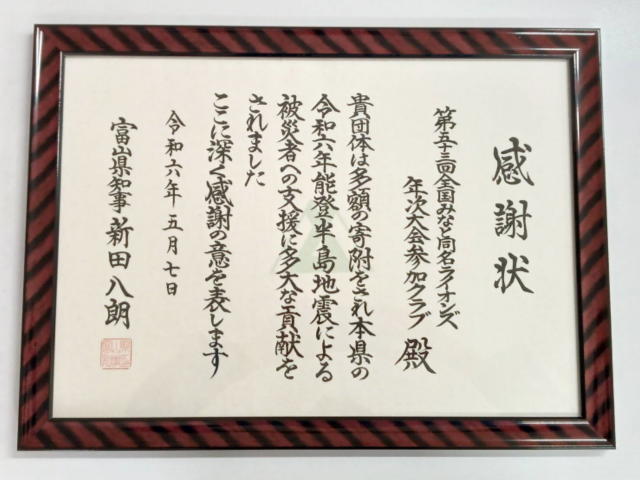 感謝状
第五十三回全国みなと同名ライオンズ
年次大会参加クラブ 殿
貴団体は多額の寄附をされ本県の
令和六年能登半島地震による
被災者への支援に多大な貢献を
されました
ここに深く感謝の意を表します
令和六年五月七日
富山県知事 新田八朗